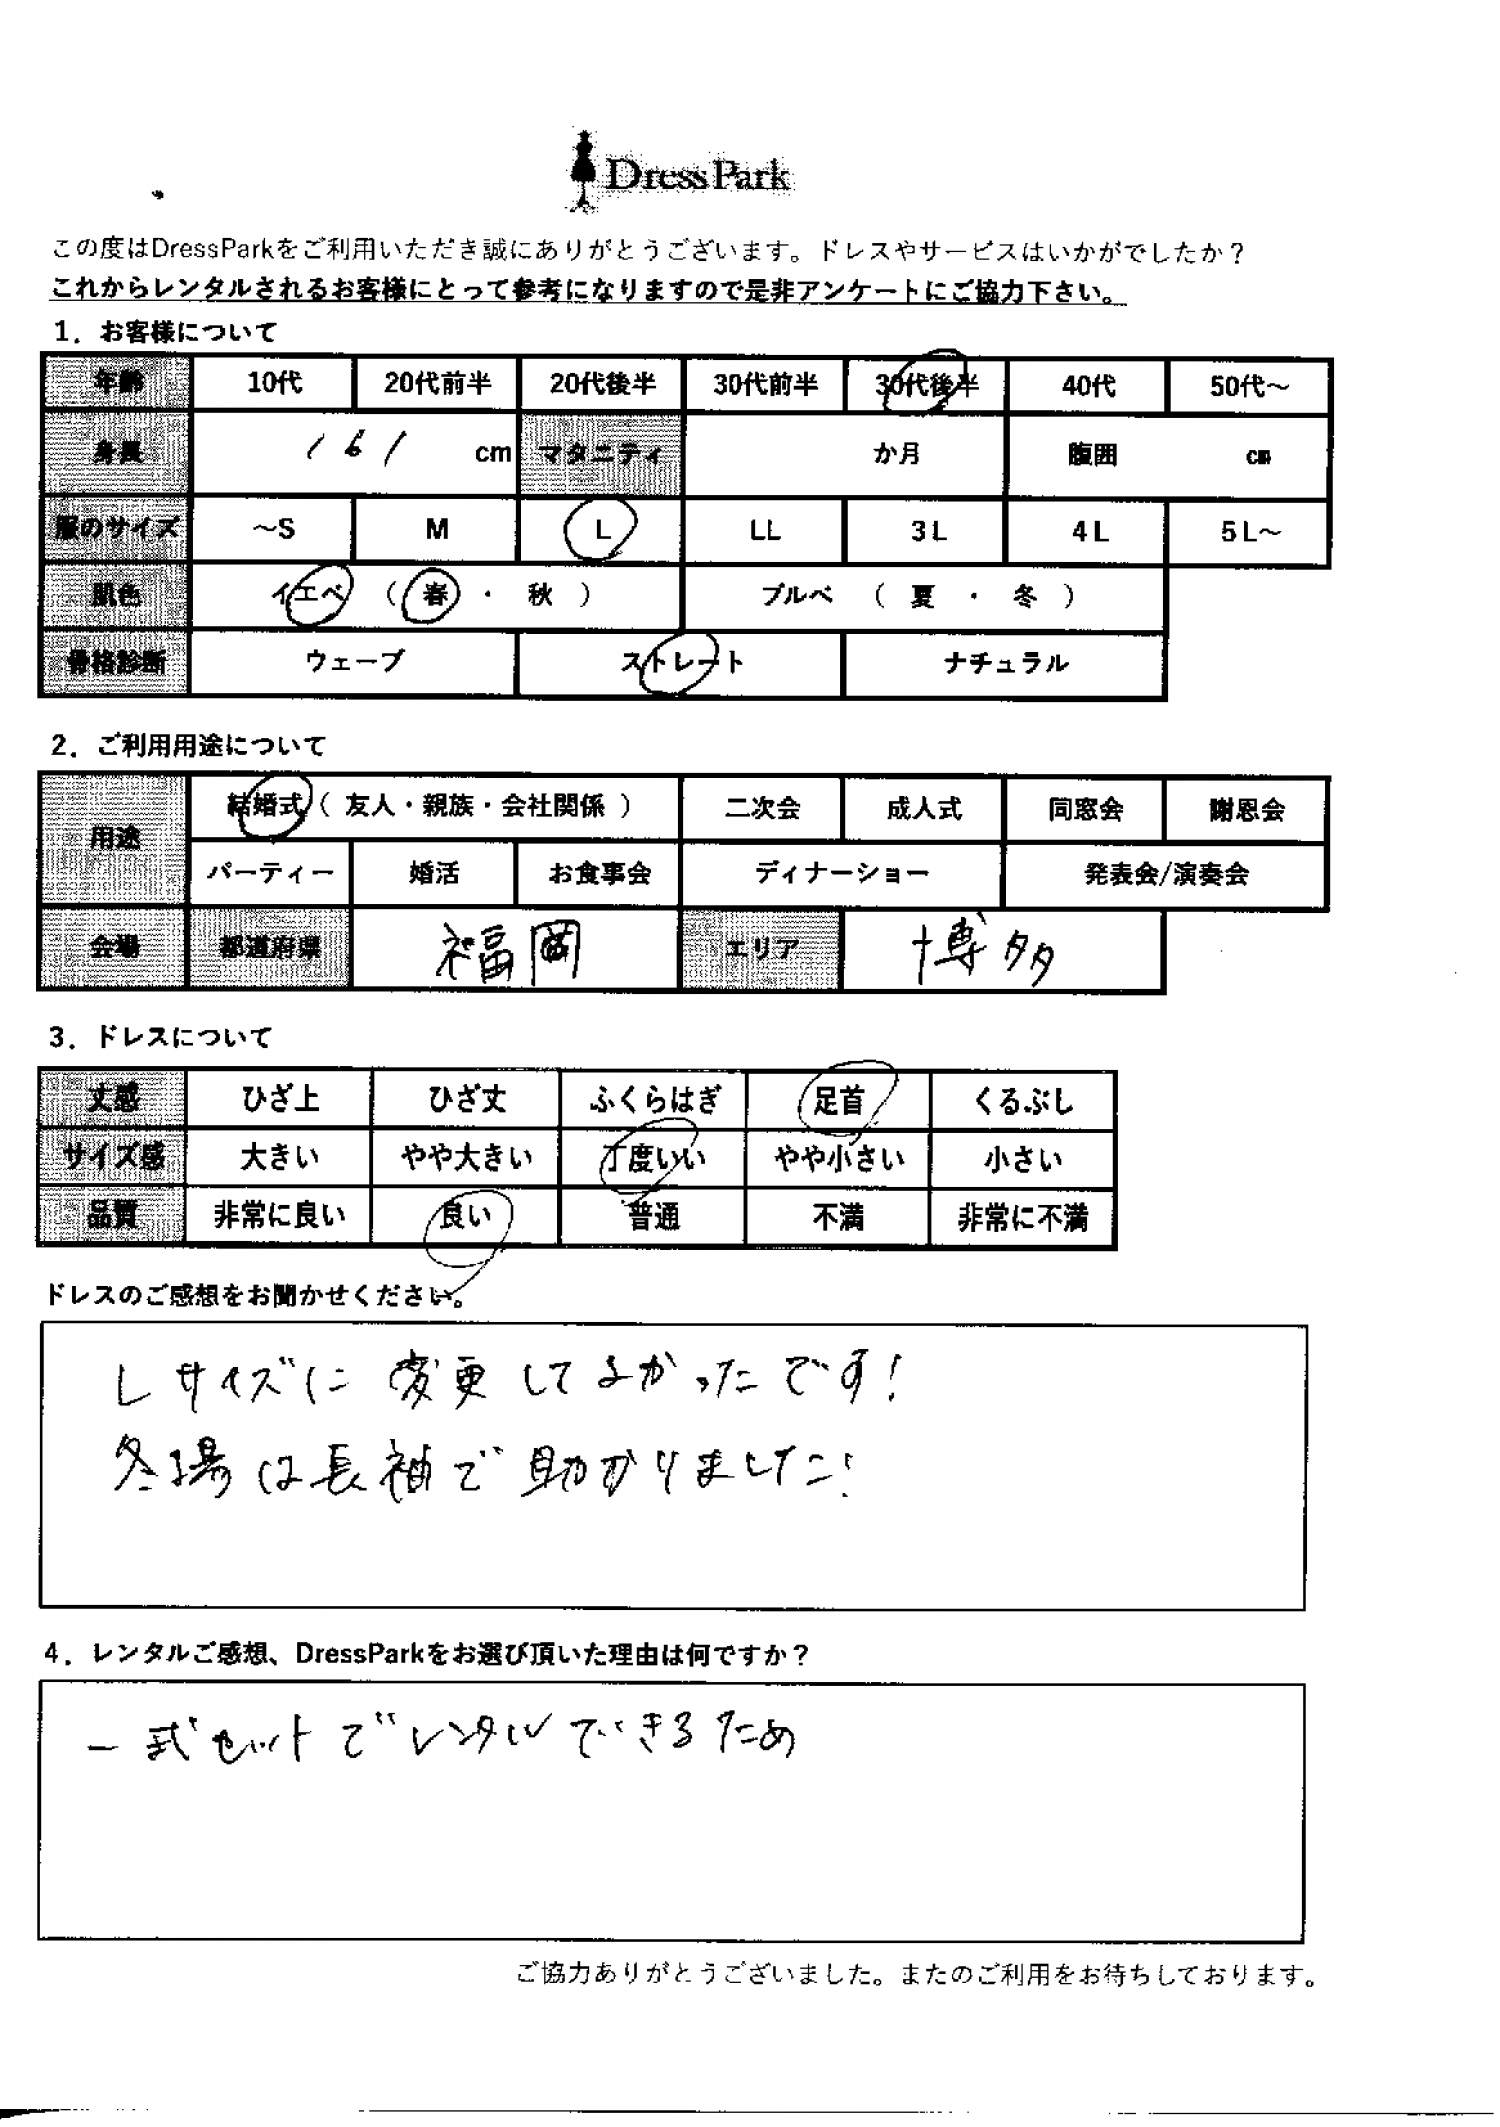 DressPark
この度はDressParkをご利用いただき誠にありがとうございます。ドレスやサービスはいかがでしたか？
これからレンタルされるお客様にとって参考になりますので是非アンケートにご協力下さい。
1．お客様について
年齢 10代 20代前半 20代後半 30代前半 30代後半 40代 50代～
身長 161 cm マタニティ か月 腹囲 cm
服のサイズ ～S M L LL 3L 4L 5L～
肌色 イエベ （ 春 ・ 秋 ） ブルベ （ 夏 ・ 冬 ）
骨格診断 ウェーブ ストレート ナチュラル
2．ご利用用途について
用途 結婚式（ 友人・親族・会社関係 ） 二次会 成人式 同窓会 謝恩会
パーティー 婚活 お食事会 ディナーショー 発表会/演奏会
会場 都道府県 福岡 エリア 博多
3．ドレスについて
丈感 ひざ上 ひざ丈 ふくらはぎ 足首 くるぶし
サイズ感 大きい やや大きい 丁度いい やや小さい 小さい
品質 非常に良い 良い 普通 不満 非常に不満
ドレスのご感想をお聞かせください。
Lサイズに変更してよかったです!
冬場は長袖で助かりました!
4．レンタルご感想、DressParkをお選び頂いた理由は何ですか？
一式セットでレンタルできるため
ご協力ありがとうございました。またのご利用をお待ちしております。